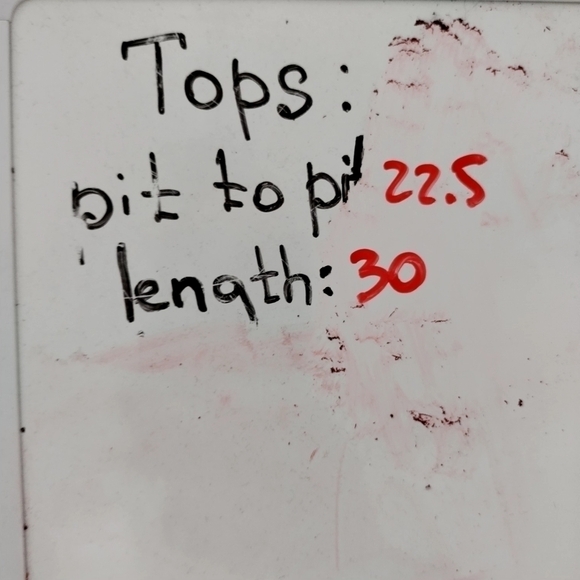 Tops:
pit to pit 22.5
length: 30